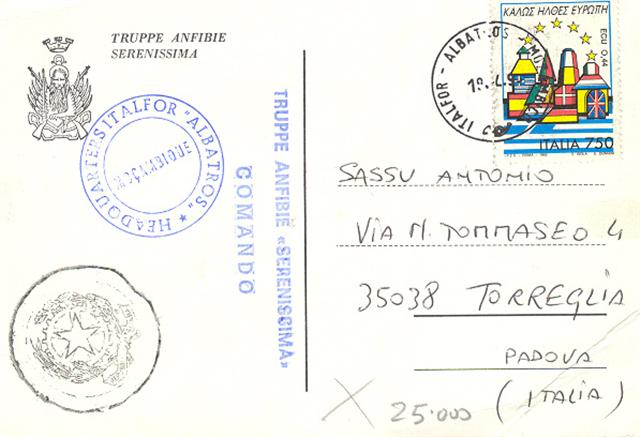 TRUPPE ANFIBIE
SERENISSIMA
HEADQUARTERS ITALFOR "ALBATROS"
MOZAMBIQUE
TRUPPE ANFIBIE «SERENISSIMA»
COMANDO
ITALFOR - ALBATROS -
ΚΑΛΩΣ ΗΛΘΕΣ ΕΥΡΩΠΗ
ECU 0,44
ITALIA 750
SASSU ANTONIO
VIA N. TOMMASEO 4
35038 TORREGLIA
PADOVA
(ITALIA)
25.000